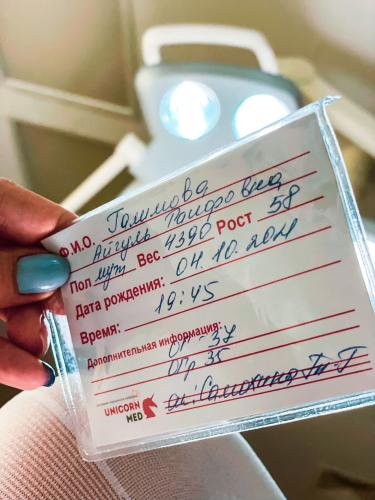 Ф.И.О. Галимова
Айгуль Раифовна
Пол муж Вес 4390 Рост 58
Дата рождения: 04.10.2021
Время: 19:45
Дополнительная информация:
ог-37
огр 35
UNICORN
MED